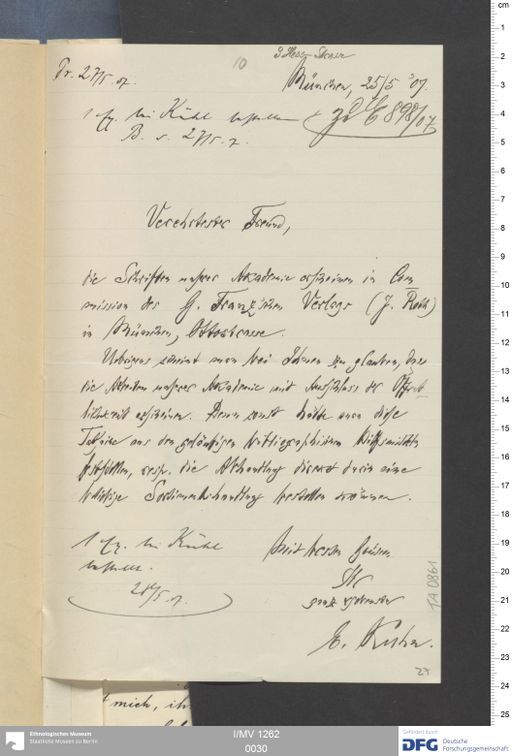 Pr. 27/5. 07.
10
München, 25/5 '07.
1 Ex. bei Kühl
E 898/07
B. 27/5. 7.
Verehrtester Freund,
die Schriften unsrer Akademie erscheinen in Com
mission des G. Franz'schen Verlags (J. Roth)
in München, Ottostrasse.
Uebrigens scheint man bei Ihnen zu glauben, dass
die Arbeiten unsrer Akademie mit Ausschluss der Öffent
lichkeit erscheinen. Denn sonst hätte man diese
aus den geläufigen bibliographischen Hilfsmitteln
feststellen, resp. die Abhandlung direct durch eine
beliebige Sortimentsbuchhandlung bestellen können.
1 Ex. bei Kühl
28/5. 07.
Mit besten Grüssen
Ihr
ganz ergebenster
E. Kuhn.
IA 0861
24
mich, ih
Ethnologisches Museum
Staatliche Museen zu Berlin
I/MV 1262
0030
Gefördert durch
DFG Deutsche
Forschungsgemeinschaft
cm
1
2
3
4
5
6
7
8
9
10
11
12
13
14
15
16
17
18
19
20
21
22
23
24
25